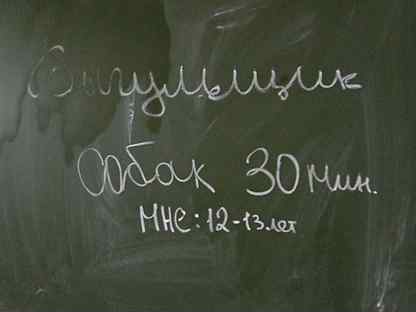 Выгульщик
Собак 30 мин.
МНЕ: 12-13 лет